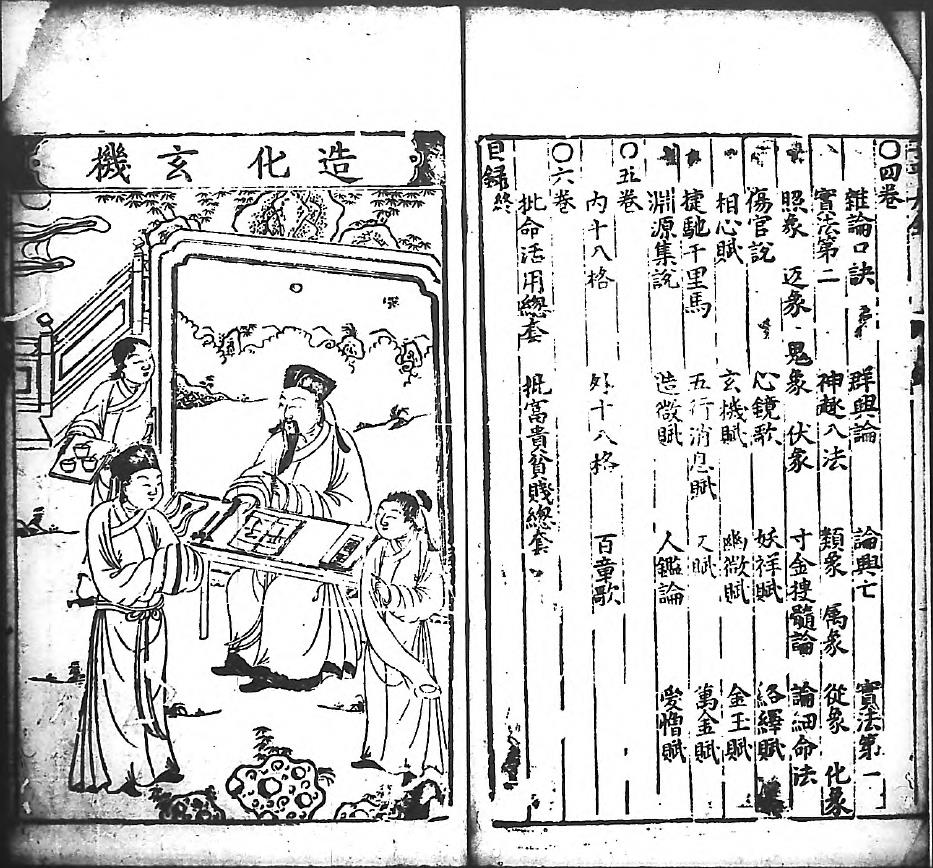 ○四卷
雜論口訣 群興論 論興亡 寶法第一
寶法第二 神趣八法 類象 属象 從象 化象
照象 返象 鬼象 伏象 寸金搜髓論 論細命法
傷官說 心鏡歌 妖祥賦 絡繹賦
相心賦 玄機賦 幽微賦 金玉賦
捷馳千里馬 五行消息賦 又賦 萬金賦
淵源集說 造微賦 人鑑論 愛憎賦
○五卷
内十八格 外十八格 百章歌
○六卷
批命活用總套 批富貴貧賤總套
目録終
造化玄機